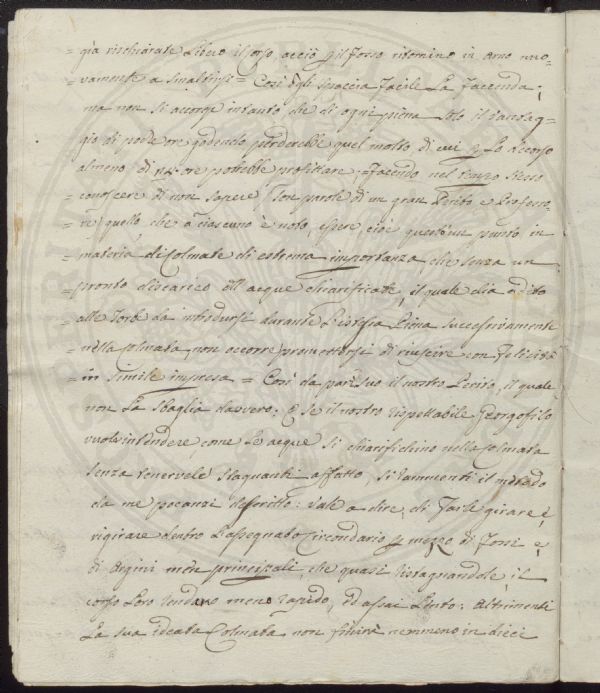 = già rischiarate libero il corso, acciò p il Fosso ritornino in Arno nuo-
= vamente a smaltirsi = Così Egli spaccia facile La Facenda;
ma non si accorge intanto, che di ogni piena solo il vantag-
gio di poche ore godendo perderebbe quel molto, di cui p Lo decorso
almeno di più ore potrebbe profittare; facendo nel tempo stesso
conoscere di non sapere (son parole di un gran Perito e Professo-
re) quello, che a ciascuno è noto, essere, cioè quest'un punto in
= materia di Colmate di estrema importanza, che senza un
= pronto discarico all'acque chiarificate, il quale dia adito
= alle Torbe da introdursi durante l'istessa Piena successivamente
= nella Colmata, non occorre promettersi di riuscire con felicità
= in simile impresa = Così da pari suo il nostro Perito, il quale
non La sbaglia davvero: E se il nostro rispettabile Georgofilo
vuol'intendere come Le acque si chiarifichino nella Colmata
senza tenervele stagnanti affatto, si rammenti il metodo
da me pocanzi descritto: vale a dire, di farle girare, e
rigirare dentro L'assegnato Circondario p mezzo di Fossi, e
di Argini meno principali, che quasi ristagnandole, il
corso Loro rendano meno rapido, ed assai Lento: Altrimenti
La sua ideata Colmata non finirà nemmeno in dieci